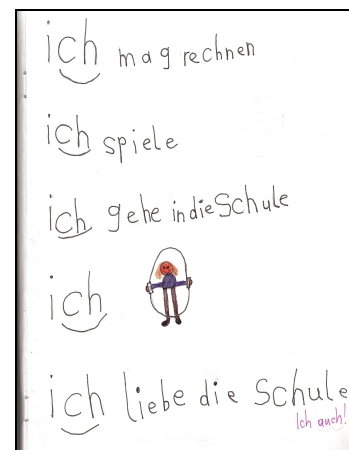 ich mag rechnen
ich spiele
ich gehe in die Schule
ich
ich liebe die Schule
Ich auch!